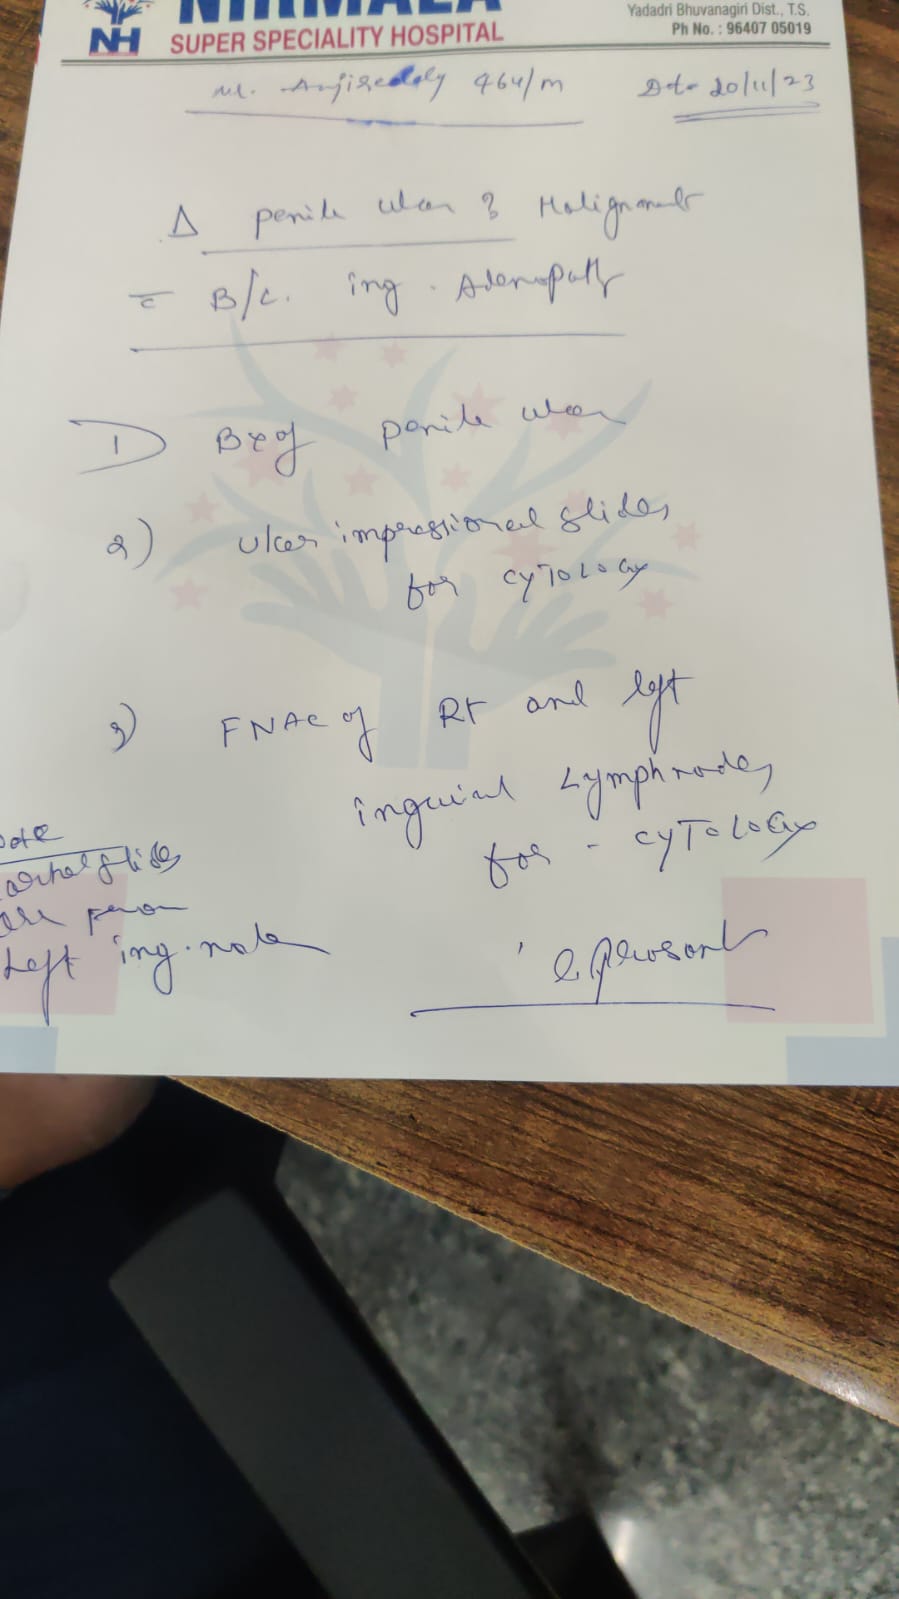 NIRMALA
Yadadri Bhuvanagiri Dist., T.S.
NH SUPER SPECIALITY HOSPITAL
Ph No. : 96407 05019
Anjireddy 46y/m Dt- 20/11/23
Δ penile ulcer ? Malignant
c̄ B/L. ing. Adenopathy
1) Bx of penile ulcer
2) Ulcer impressional slides
for CYTOLOGY
3) FNAC of Rt and left
inguinal Lymphnodes
for - CYTOLOGY
slides
are from
Left ing. node